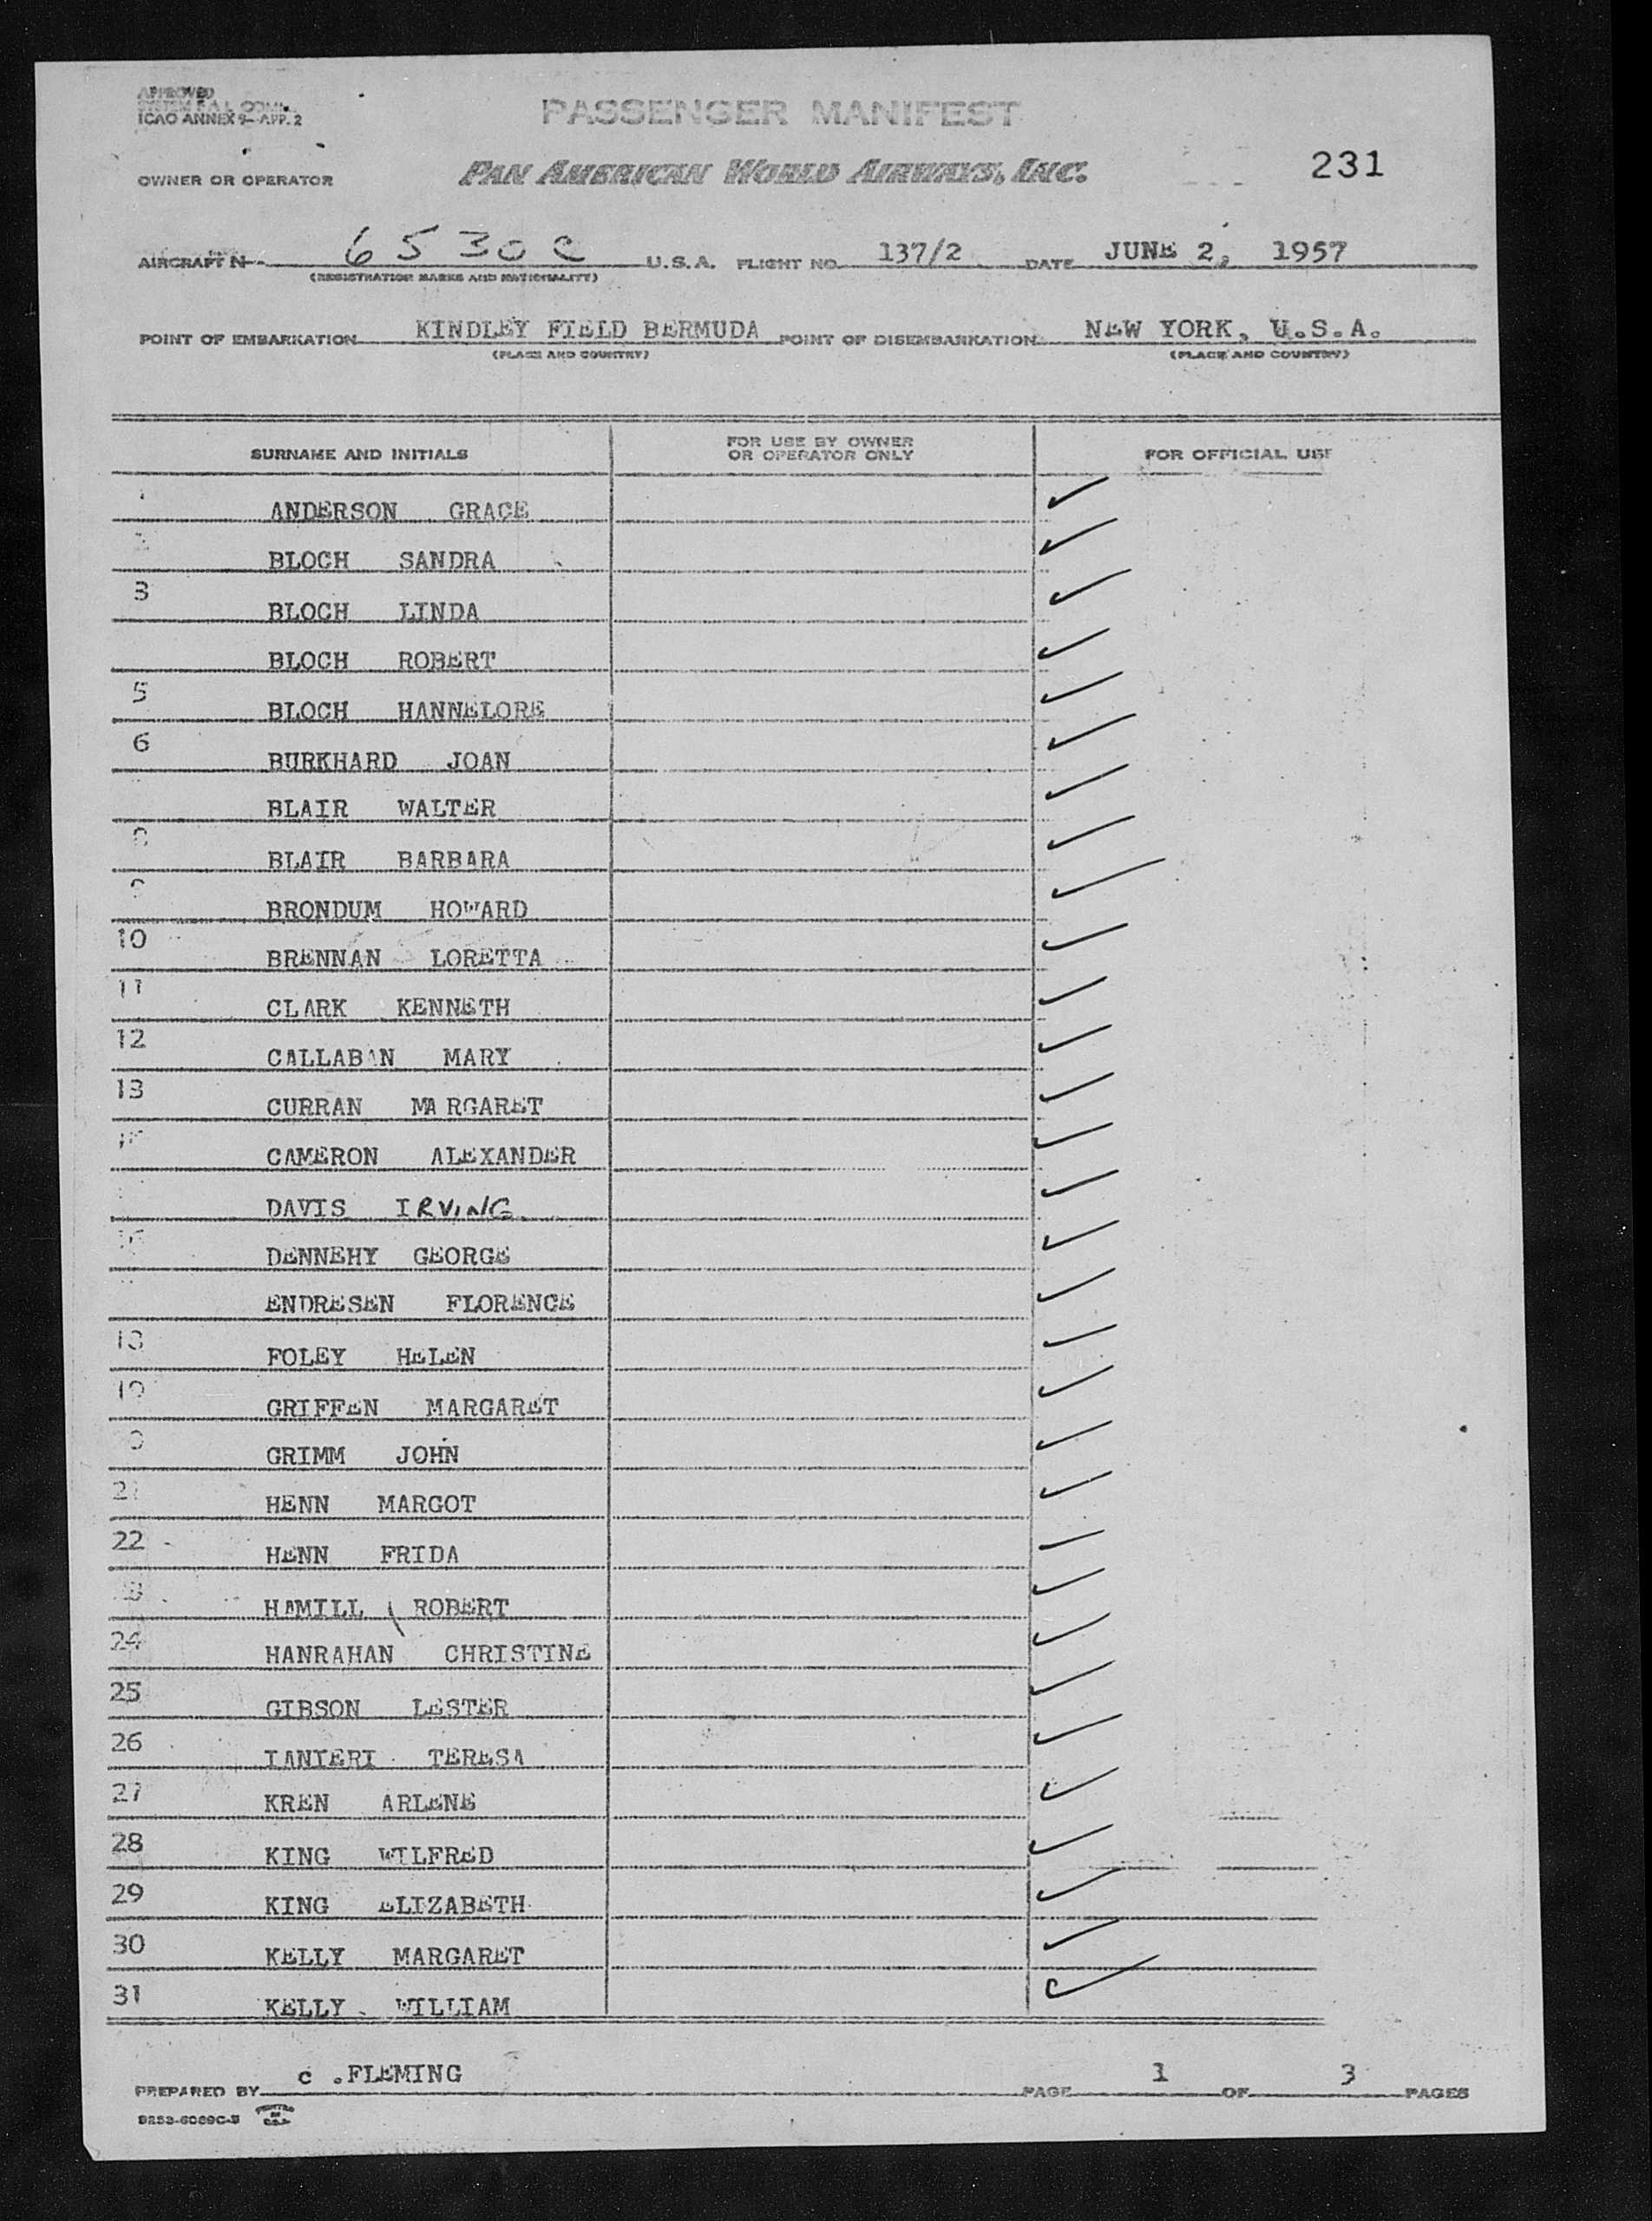 APPROVED
SYSTEM F.A.L. COMM.
ICAO ANNEX 9-APP. 2
PASSENGER MANIFEST
OWNER OR OPERATOR PAN AMERICAN WORLD AIRWAYS, INC. 231
AIRCRAFT N 6530C U.S.A. FLIGHT NO. 137/2 DATE JUNE 2, 1957
(REGISTRATION MARKS AND NATIONALITY)
POINT OF EMBARKATION KINDLEY FIELD BERMUDA POINT OF DISEMBARKATION NEW YORK, U.S.A.
(PLACE AND COUNTRY) (PLACE AND COUNTRY)
SURNAME AND INITIALS FOR USE BY OWNER OR OPERATOR ONLY FOR OFFICIAL USE
ANDERSON GRACE
BLOCH SANDRA
3 BLOCH LINDA
BLOCH ROBERT
5 BLOCH HANNELORE
6 BURKHARD JOAN
BLAIR WALTER
8 BLAIR BARBARA
9 BRONDUM HOWARD
10 BRENNAN LORETTA
11 CLARK KENNETH
12 CALLABAN MARY
13 CURRAN MARGARET
CAMERON ALEXANDER
DAVIS IRVING
16 DENNEHY GEORGE
ENDRESEN FLORENCE
18 FOLEY HELEN
19 GRIFFEN MARGARET
GRIMM JOHN
21 HENN MARGOT
22 HENN FRIDA
23 HAMILL ROBERT
24 HANRAHAN CHRISTINE
25 GIBSON LESTER
26 IANIERI TERESA
27 KREN ARLENE
28 KING WILFRED
29 KING ELIZABETH
30 KELLY MARGARET
31 KELLY WILLIAM
PREPARED BY c .FLEMING PAGE 1 OF 3 PAGES
PRINTED IN U.S.A.